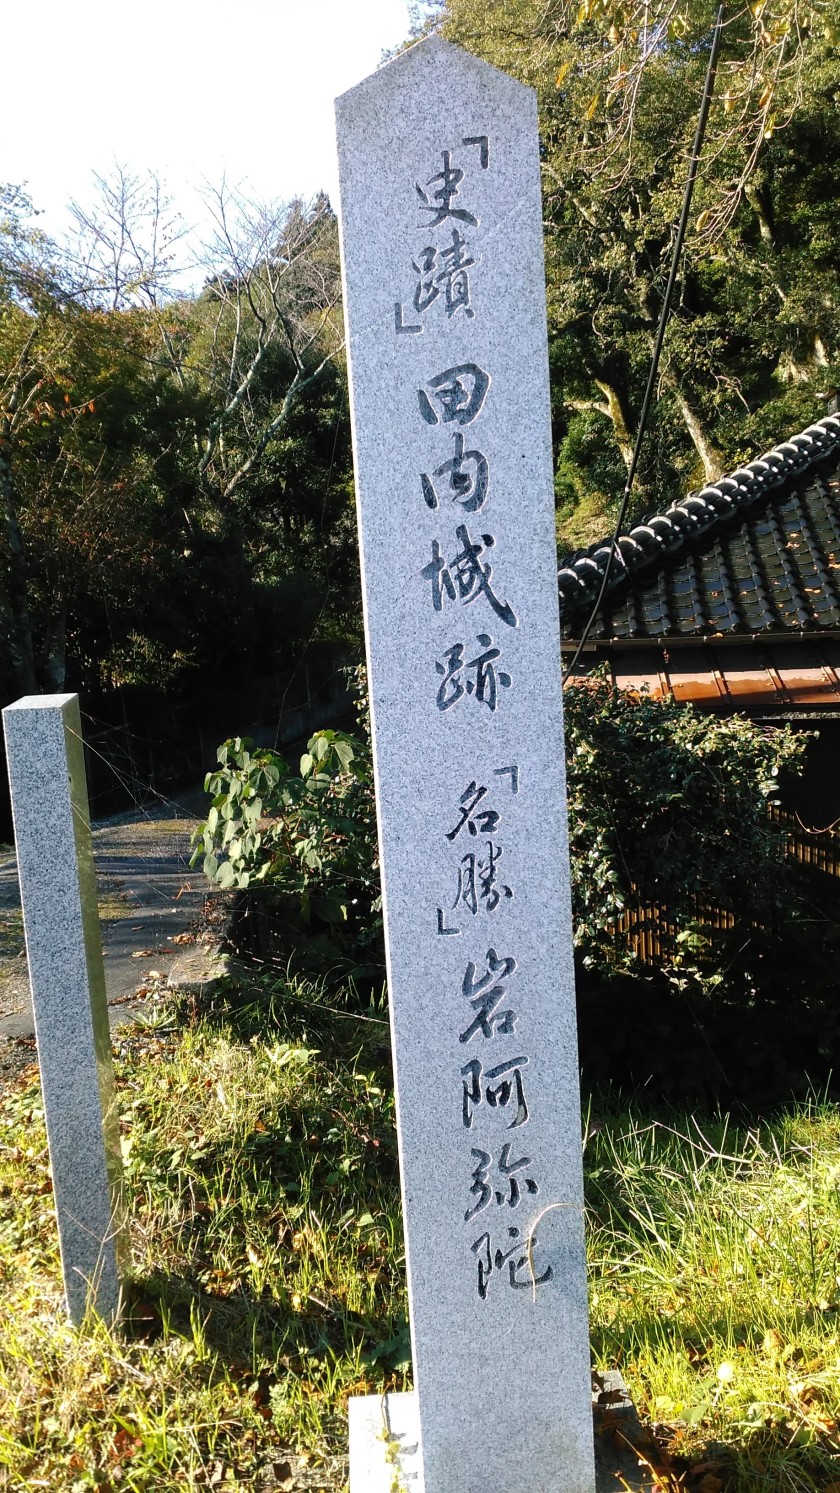 「史蹟」田内城跡「名勝」岩阿弥陀